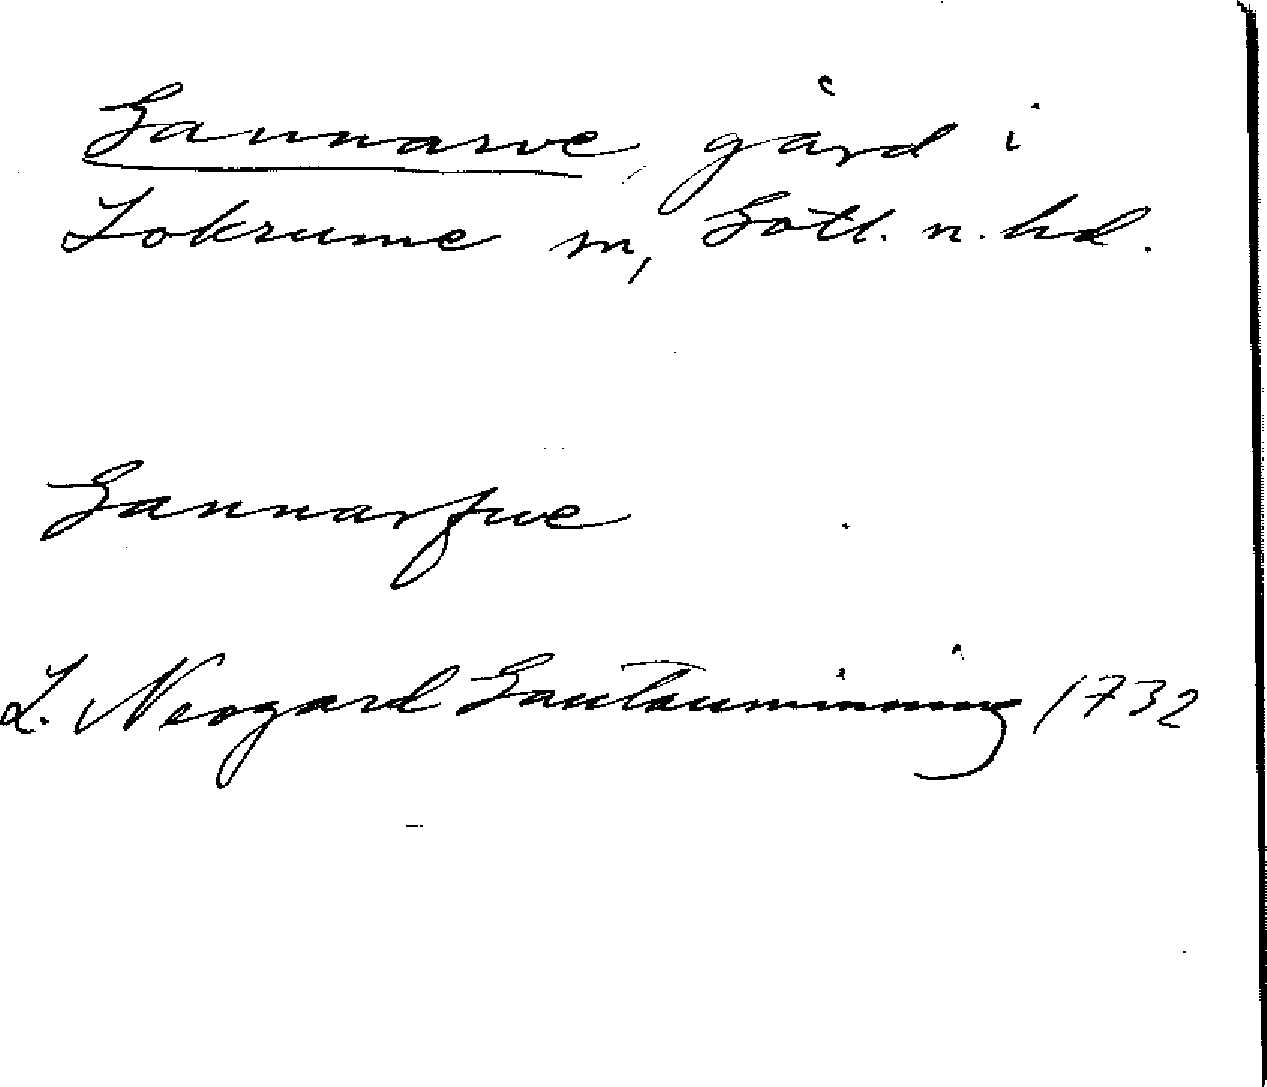 Gannarve, gård i
Lokrume sn, Gotl. n. hd.
Gannarfve
L. Neogard Gautauminning 1732